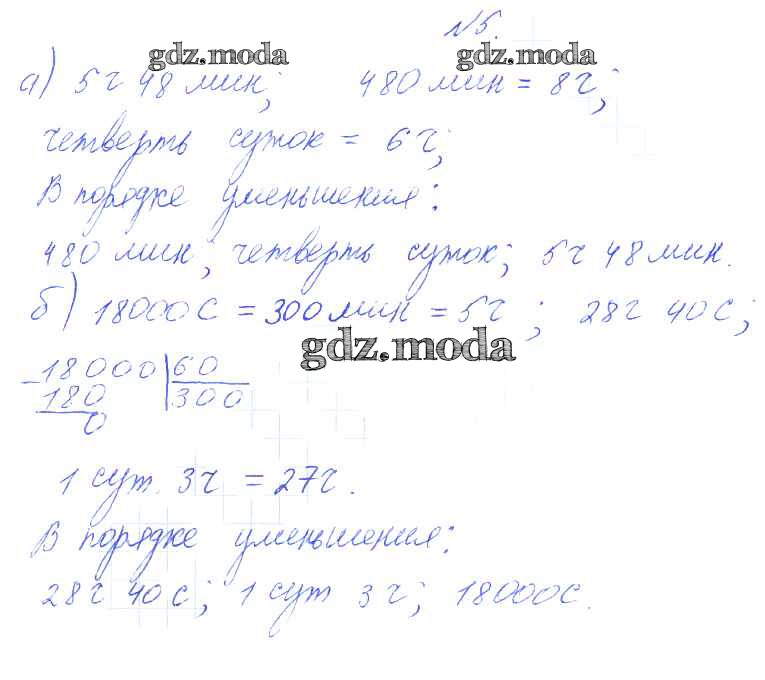 №5.
gdz.moda gdz.moda
а) 5ч 48 мин; 480 мин = 8ч;
четверть суток = 6ч;
В порядке уменьшения:
480 мин; четверть суток; 5ч 48 мин.
б) 18000с = 300 мин = 5ч; 28ч 40с;
gdz.moda
- 18000 | 60
180 | 300
0
1 сут. 3ч = 27ч.
В порядке уменьшения:
28ч 40с; 1 сут 3ч; 18000с.